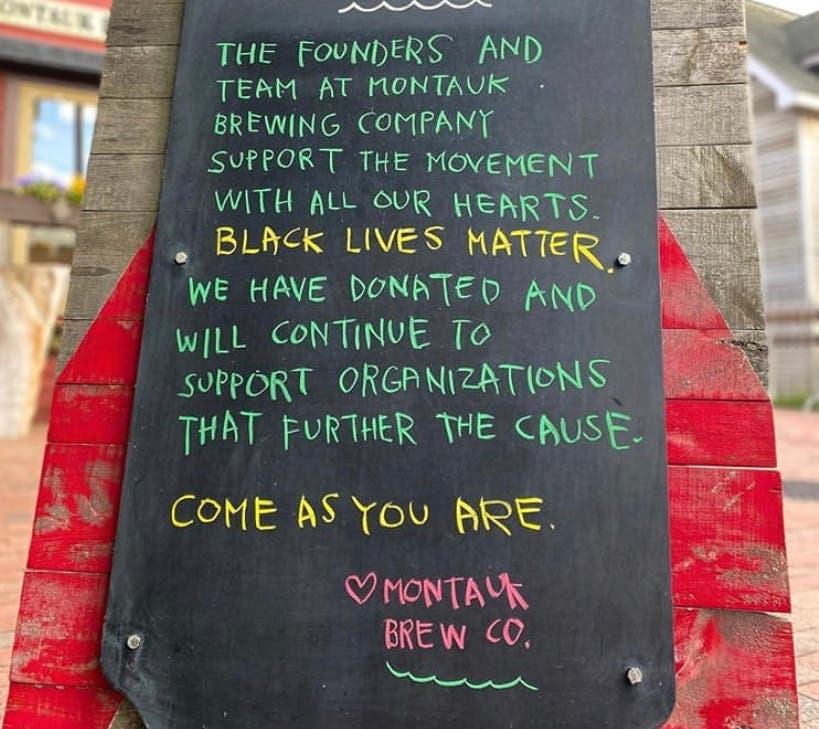 MONTAUK
THE FOUNDERS AND
TEAM AT MONTAUK
BREWING COMPANY
SUPPORT THE MOVEMENT
WITH ALL OUR HEARTS.
BLACK LIVES MATTER.
WE HAVE DONATED AND
WILL CONTINUE TO
SUPPORT ORGANIZATIONS
THAT FURTHER THE CAUSE.
COME AS YOU ARE.
♡ MONTAUK
BREW CO.